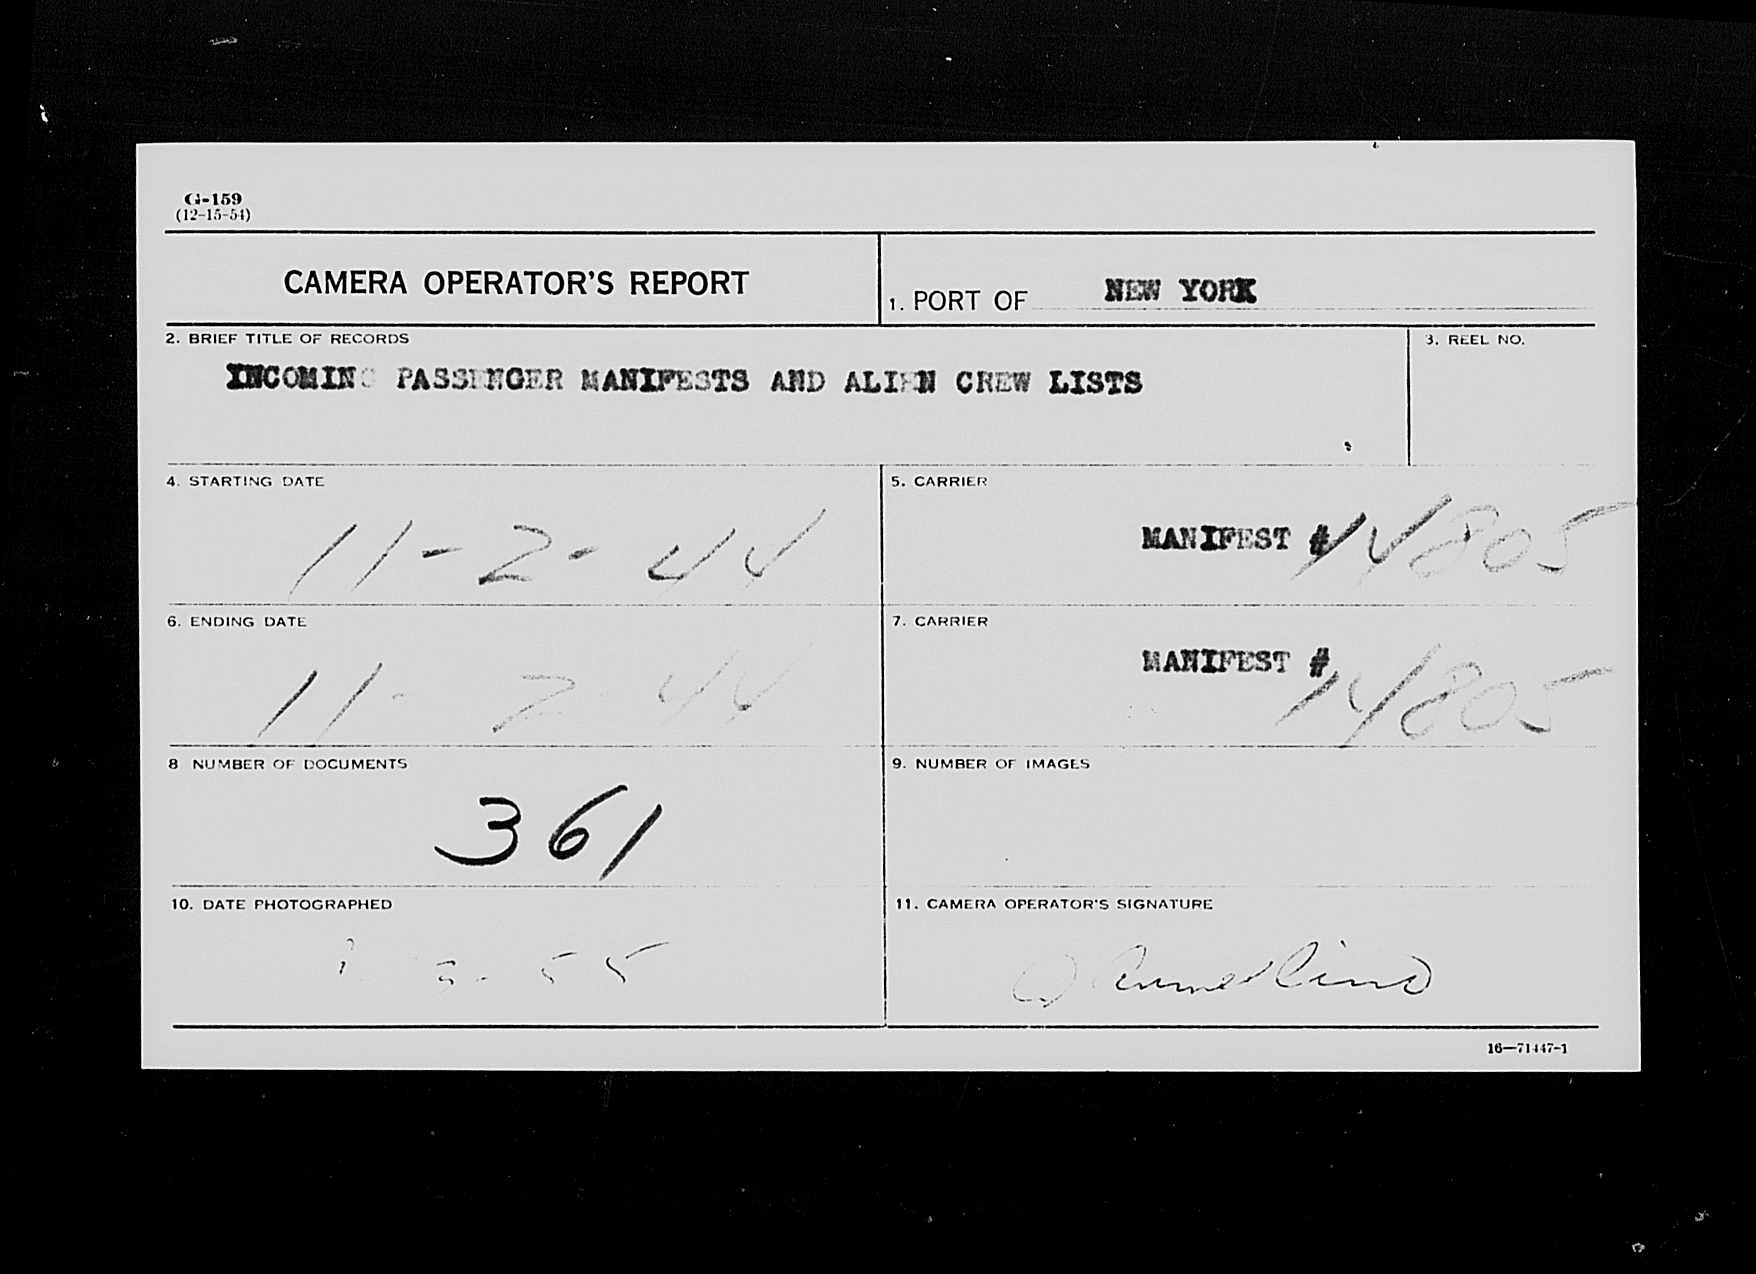 G-159
(12-15-54)
CAMERA OPERATOR'S REPORT
1. PORT OF NEW YORK
2. BRIEF TITLE OF RECORDS
3. REEL NO.
INCOMING PASSENGER MANIFESTS AND ALIEN CREW LISTS
4. STARTING DATE
5. CARRIER
11-2-44
MANIFEST # 14805
6. ENDING DATE
7. CARRIER
11- 2 44
MANIFEST # 14805
8 NUMBER OF DOCUMENTS
9. NUMBER OF IMAGES
361
10. DATE PHOTOGRAPHED
11. CAMERA OPERATOR'S SIGNATURE
55
16—71447-1